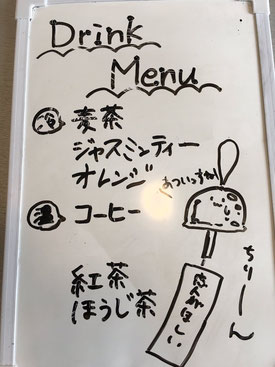 Drink
Menu
冷 麦茶
ジャスミンティー
オレンジ
あついっすね
温 コーヒー
紅茶
ほうじ茶
ちりーん
さんがほしい